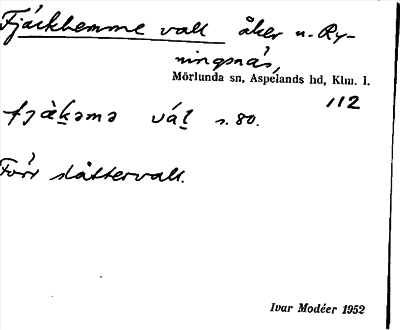 Fjäckhemme vall åker u. Ry-
ningsnäs,
Mörlunda sn, Aspelands hd, Klm. l.
112
fjäkəmə vál s. 80.
Förr slåttervall.
Ivar Modéer 1952